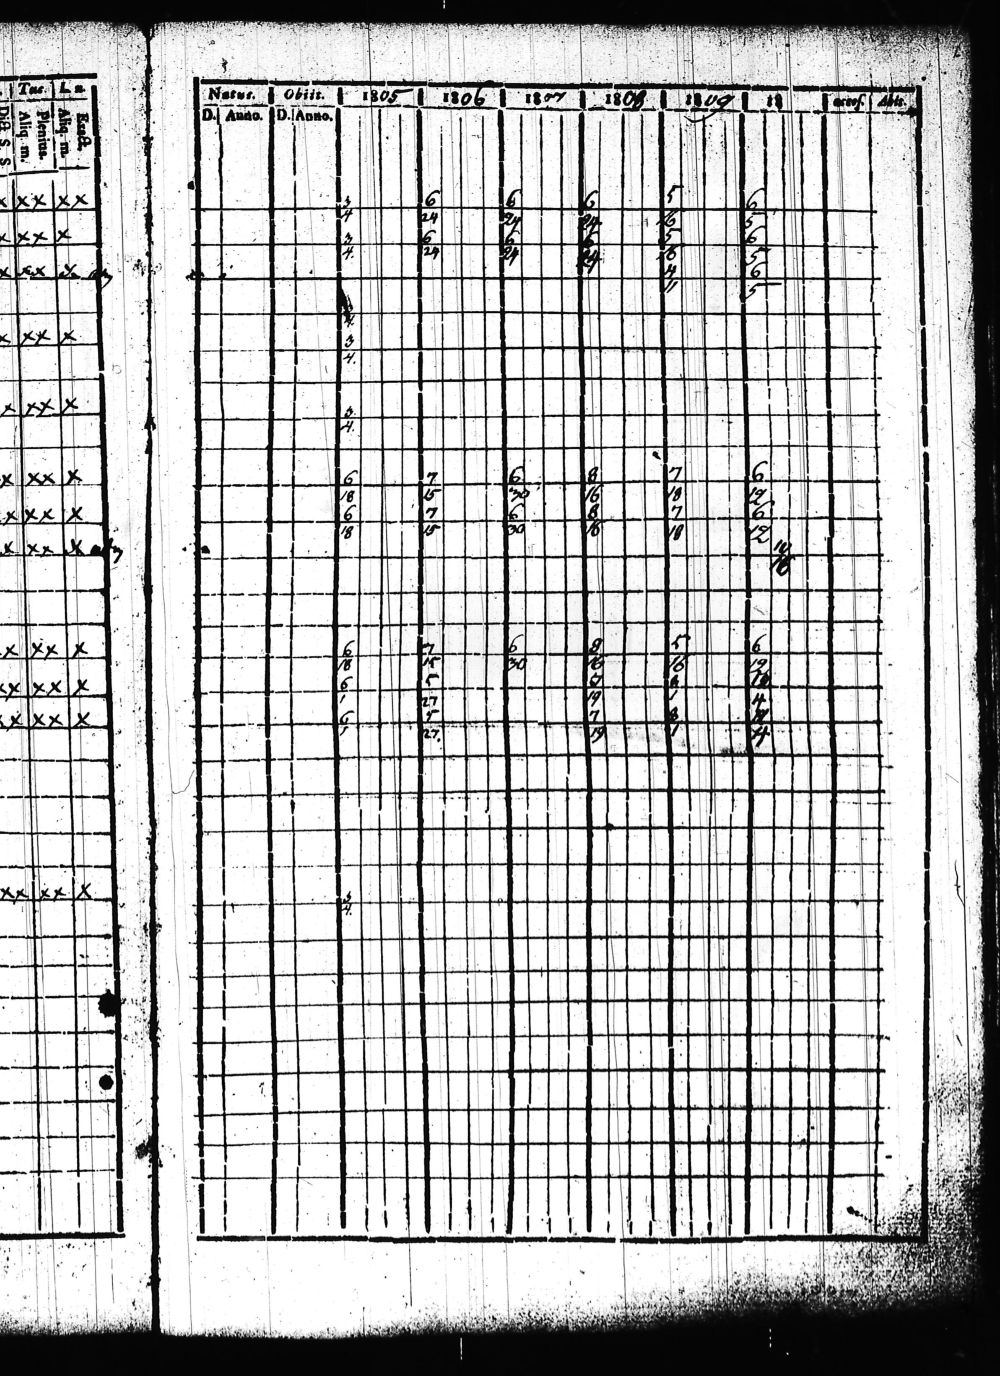 Tac. L. n.
Diſt. S. S. Aliq. m. Plenius. Aliq. m. Exact.
Natus. Obiit. 1805 1806 1807 1808 1809 18 accesſ. Abit.
D. Anno. D. Anno.
x xx xx 3 6 6 6 5 6
4 24 24 24 16 5
x xx x 3 6 6 6 5 6
4. 24 24 24 16 5
x xx x 4 6
11 5
4.
x xx x 3
4.
x xx x 3
4.
x xx x 6 7 6 8 7 6
18 15 30 16 18 12
x xx x 6 7 6 8 7 6
18 15 30 16 18 12
x xx x 10
16
xx xx x 6 7 6 8 5 6
18 15 30 16 16 12
xx xx x 6 5 7 8
1 27 19 1 4
xx xx x 6 5 7 8
1 27. 19 1 4
xx xx x 3
4.